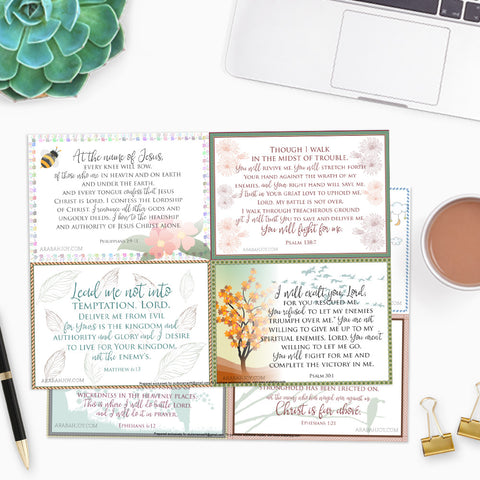 At the name of Jesus,
every knee will bow,
of those who are in heaven and on earth
and under the earth,
and every tongue confess that Jesus
Christ is Lord. I confess the lordship
of Christ. I renounce all other gods and
ungodly deeds. I bow to the headship
and authority of Jesus Christ alone.
Philippians 2:9-11
ARABAHJOY.COM
Though I walk
in the midst of trouble,
You will revive me. You will stretch forth
Your hand against the wrath of my
enemies, and Your right hand will save me.
I trust in Your great love to uphold me.
Lord, my battle is not over.
I walk through treacherous ground
yet I will trust You to save and deliver me.
You will fight for me.
Psalm 138:7
ARABAHJOY.COM
Lead me not into
temptation, Lord.
Deliver me from evil
for Yours is the kingdom and
authority and glory and I desire
to live for Your kingdom,
not the enemy's.
Matthew 6:13
ARABAHJOY.COM
I will exalt you, Lord,
for You rescued me.
You refused to let my enemies
triumph over me." You are not
willing to give me up to my
spiritual enemies, Lord. You aren't
willing to let me go.
You will fight for me and
complete the victory in me.
Psalm 30:1
ARABAHJOY.COM
wickedness in the heavenly places.
This is where I will do battle Lord,
and I will do it in prayer.
Ephesians 6:12
ARABAHJOY.COM
stronghold has been erected on,
Christ is far above.
Ephesians 1:21
ARABAHJOY.COM